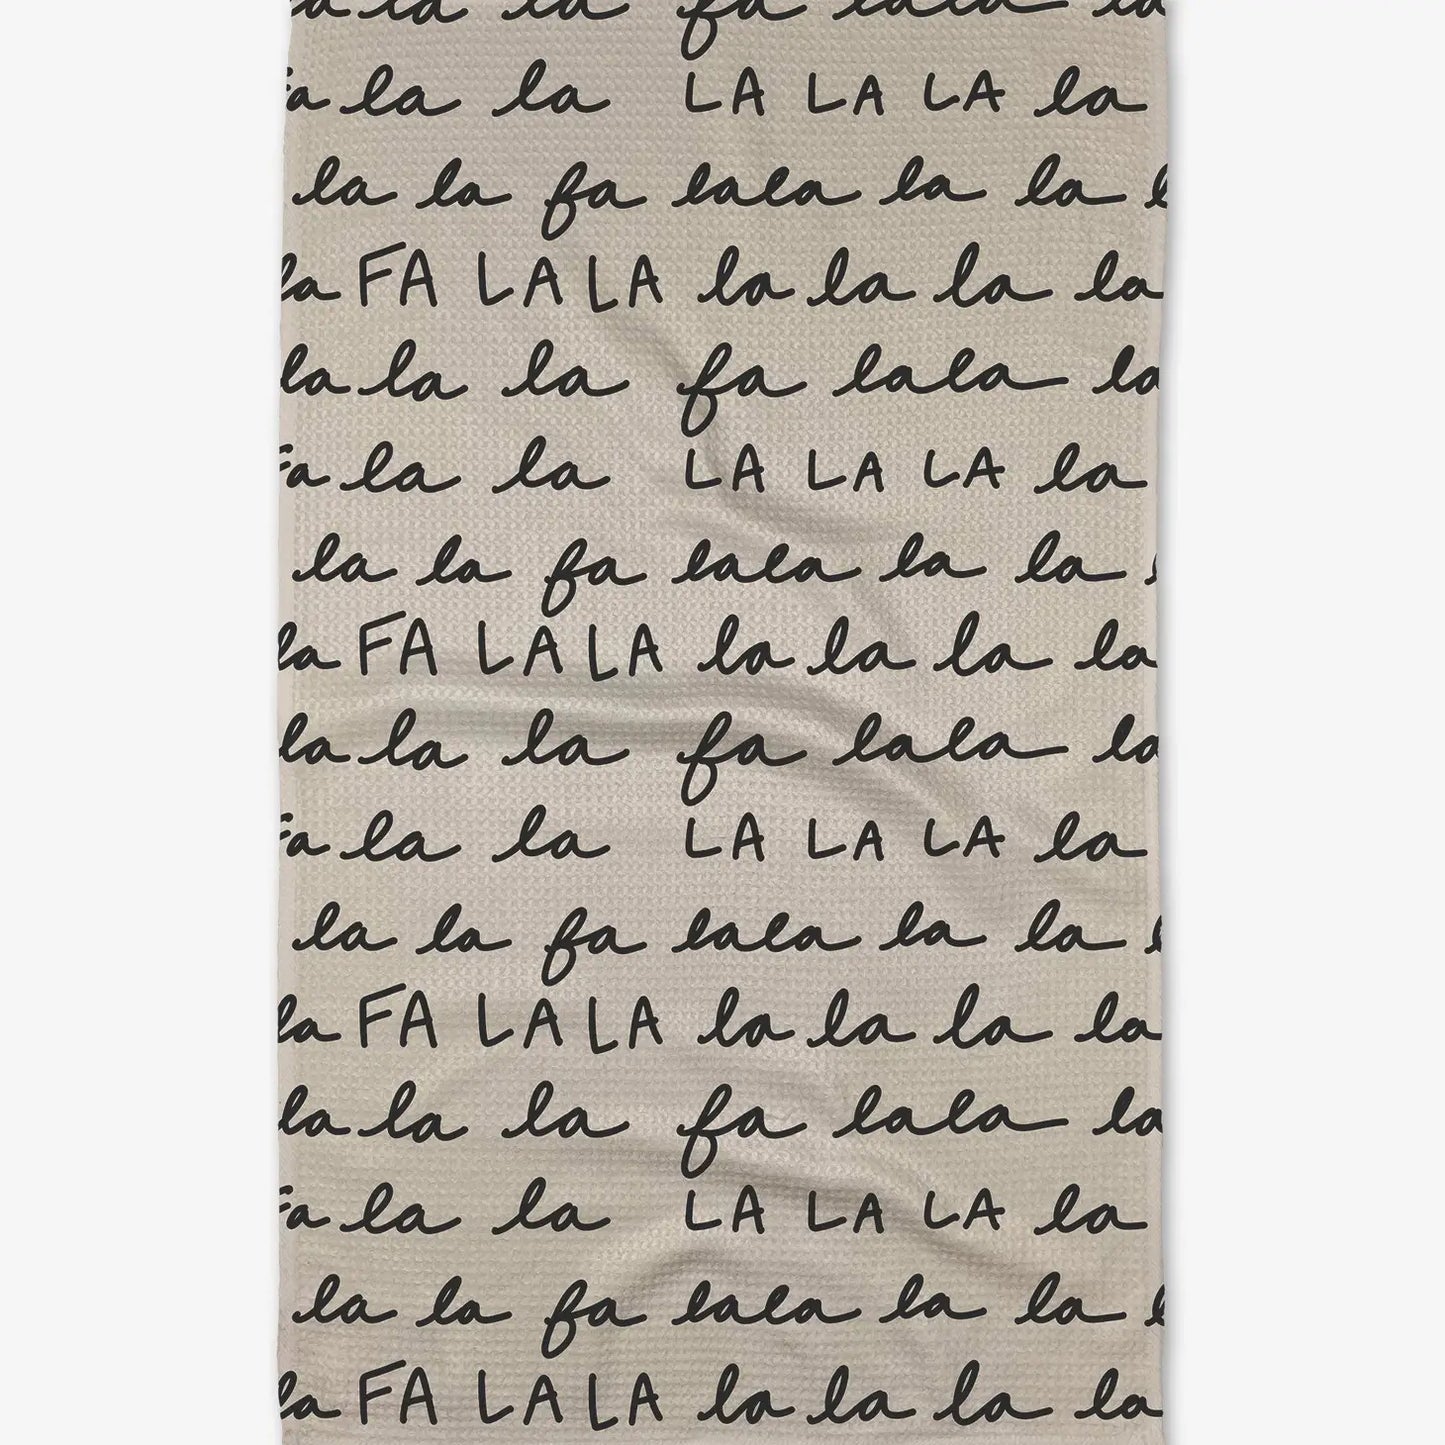 la la la fa lala la
Fa la la LA LA LA la
la la fa lala la la l
la FA LA LA la la la la
la la la fa lala la
Fa la la LA LA LA la
la la fa lala la la l
la FA LA LA la la la la
la la la fa lala la
Fa la la LA LA LA la
la la fa lala la la l
la FA LA LA la la la la
la la la fa lala la
Fa la la LA LA LA la
la la fa lala la la l
la FA LA LA la la la la